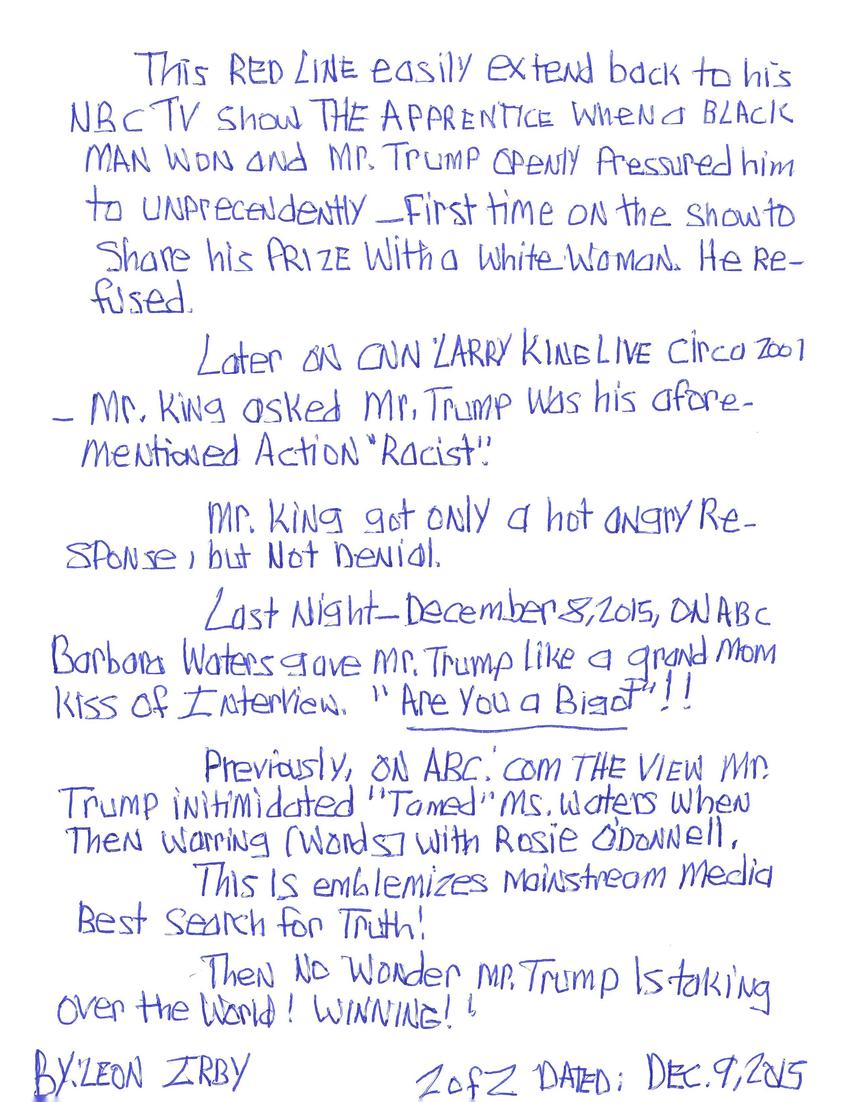 This RED LINE easily extend back to his
NBC TV show THE APPRENTICE WHEN a BLACK
MAN WON and MR. TRUMP OPENLY Pressured him
to UNPrecendently _First time ON the show to
Share his PRIZE With a White Woman. He Re-
fused.
Later ON CNN 'LARRY KING LIVE Circa 2007
_ Mr. King asked Mr. Trump Was his afore-
mentioned Action "Racist".
Mr. King got ONLY a hot angry Re-
SPONse, but Not Denial.
Last Night_December 8, 2015, ON ABC
Barbara Waters gave Mr. Trump like a grand Mom
Kiss of Interview. "Are You a Bigot"!!
Previously, ON ABC.'COM THE VIEW Mr.
Trump initimidated "Tamed" Ms. Waters when
Then Warring [Words] with Rosie O'Donnell.
This Is emblemizes Mainstream Media
Best Search for Truth!
Then No Wonder Mr. Trump Is taking
over the World! WINNING!!
BY: LEON IRBY 2 of 2 DATED: DEC. 9, 2015